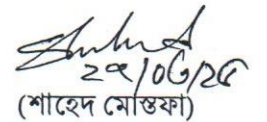 ২৯/০৬/২৫
(শাহেদ মোস্তফা)